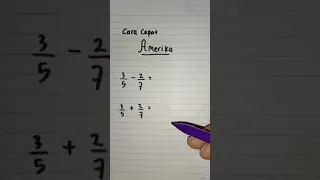 Cara Capat
Amerika
3/5 - 2/7 =
3/5 + 2/7 =
3/5 - 2/7
3/5 + 2/7